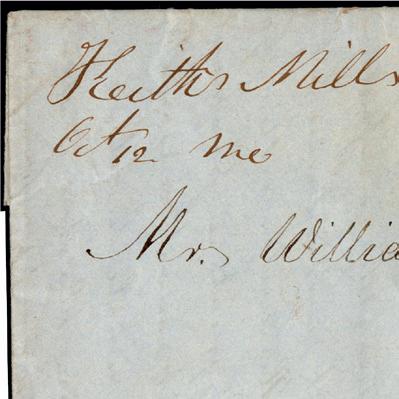 Keiths Mills
Oct 12 Me
Mr. Willia